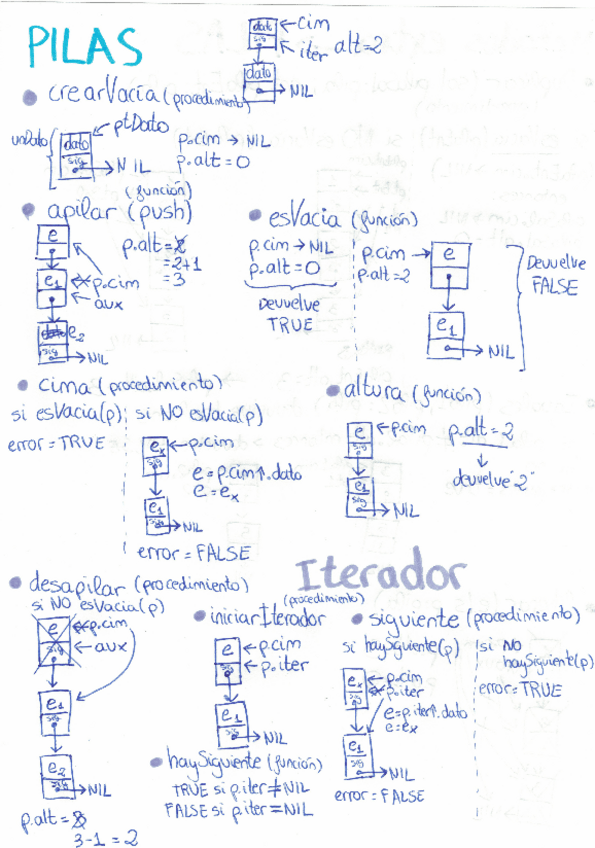 PILAS
dato ← cim
sig ← iter alt=2
dato
→ NIL
• crearVacia (procedimiento)
unDato
dato
sig
ptDato
→ NIL
p.cim → NIL
p.alt = 0
(función)
• apilar (push)
e
e1
p.cim
aux
e2
sig
→ NIL
p.alt = 2
= 2+1
= 3
• esVacia (función)
p.cim → NIL
p.alt = 0
Devuelve
TRUE
p.cim → e
p.alt = 2
e1
→ NIL
Devuelve
FALSE
• cima (procedimiento)
si esVacia(p)
error = TRUE
si NO esVacia(p)
ex ← p.cim
sig
e = p.cim↑.dato
e = ex
e1
sig
→ NIL
error = FALSE
• altura (función)
e ← p.cim
sig
e1
sig
→ NIL
p.alt = 2
devuelve "2"
• desapilar (procedimiento)
si NO esVacia(p)
e
p.cim
sig ← aux
e1
sig
e2
sig
→ NIL
p.alt = 3
3-1 = 2
Iterador
(procedimiento)
• iniciarIterador
e ← p.cim
sig ← p.iter
e1
sig
→ NIL
• haySiguiente (función)
TRUE si p.iter ≠ NIL
FALSE si p.iter = NIL
• siguiente (procedimiento)
si haySiguiente(p)
ex ← p.cim
sig
p.iter
e = p.iter↑.dato
e = ex
e1
sig
→ NIL
error = FALSE
si NO
haySiguiente(p)
error = TRUE